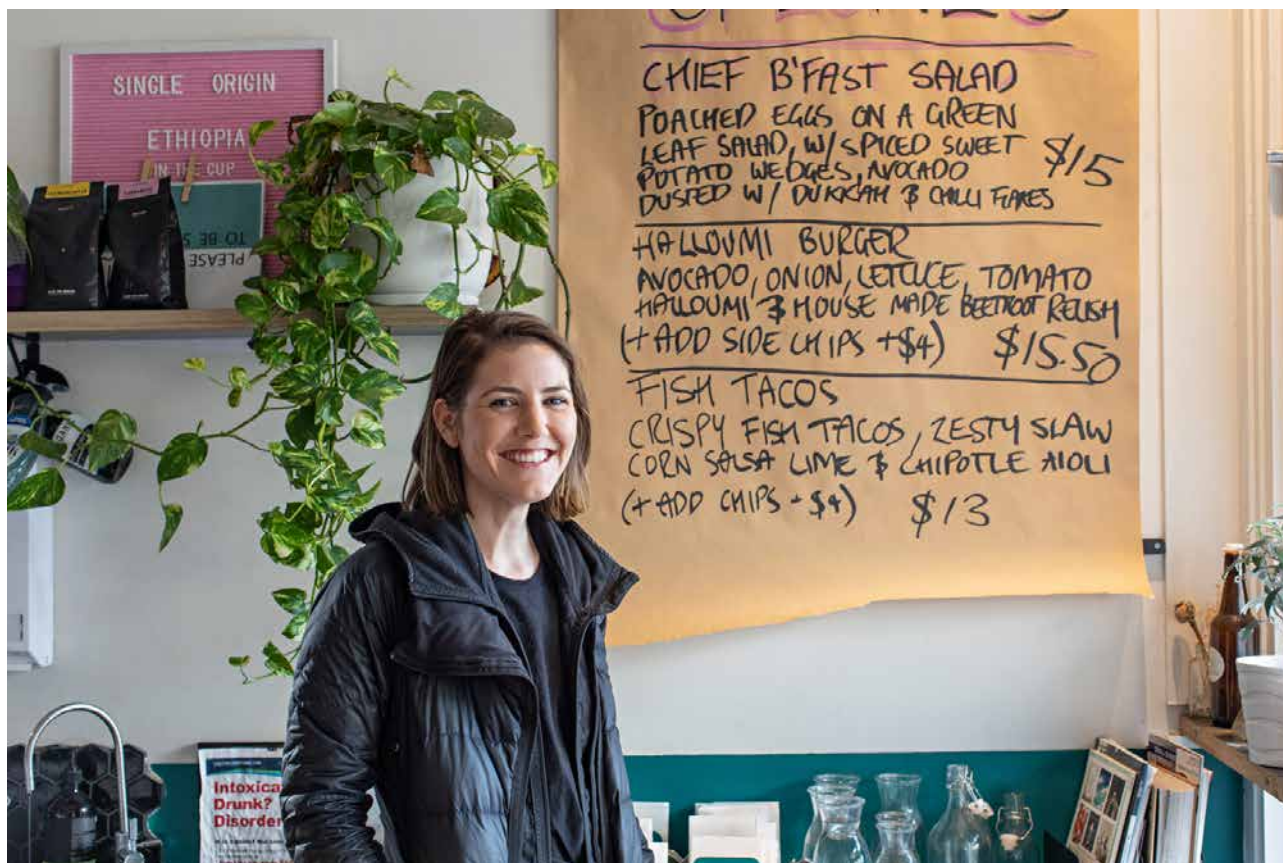 SINGLE ORIGIN
ETHIOPIA
IN THE CUP
PLEASE
TO BE S
CHIEF B'FAST SALAD
POACHED EGGS ON A GREEN
LEAF SALAD, W/ SPICED SWEET
POTATO WEDGES, AVOCADO
DUSTED W/ DUKKAH & CHILLI FLAKES
$15
HALLOUMI BURGER
AVOCADO, ONION, LETTUCE, TOMATO
HALLOUMI & HOUSE MADE BEETROOT RELISH
(+ ADD SIDE CHIPS +$4) $15.50
FISH TACOS
CRISPY FISH TACOS, ZESTY SLAW
CORN SALSA LIME & CHIPOTLE AIOLI
(+ ADD CHIPS +$4) $13
Intoxica
Drunk?
Disorder